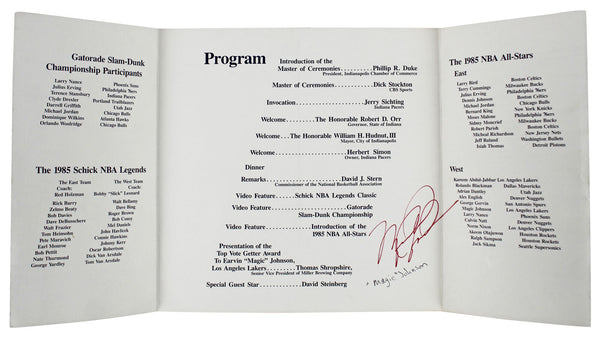 Gatorade Slam-Dunk
Championship Participants
Larry Nance Phoenix Suns
Julius Erving Philadelphia 76ers
Terence Stansbury Indiana Pacers
Clyde Drexler Portland Trailblazers
Darrell Griffith Utah Jazz
Michael Jordan Chicago Bulls
Dominique Wilkins Atlanta Hawks
Orlando Woolridge Chicago Bulls
The 1985 Schick NBA Legends
The East Team The West Team
Coach: Coach:
Red Holzman Bobby "Slick" Leonard
Rick Barry Walt Bellamy
Zelmo Beaty Dave Bing
Bob Davies Roger Brown
Dave DeBusschere Bob Cousy
Walt Frazier Mel Daniels
Tom Heinsohn John Havlicek
Pete Maravich Connie Hawkins
Earl Monroe Johnny Kerr
Bob Pettit Oscar Robertson
Nate Thurmond Dick Van Arsdale
George Yardley Tom Van Arsdale
Program
Introduction of the
Master of Ceremonies Phillip R. Duke
President, Indianapolis Chamber of Commerce
Master of Ceremonies Dick Stockton
CBS Sports
Invocation Jerry Sichting
Indiana Pacers
Welcome The Honorable Robert D. Orr
Governor, State of Indiana
Welcome The Honorable William H. Hudnut, III
Mayor, City of Indianapolis
Welcome Herbert Simon
Owner, Indiana Pacers
Dinner
Remarks David J. Stern
Commissioner of the National Basketball Association
Video Feature Schick NBA Legends Classic
Video Feature Gatorade
Slam-Dunk Championship
Video Feature Introduction of the
1985 NBA All-Stars
Presentation of the
Top Vote Getter Award
To Earvin "Magic" Johnson,
Los Angeles Lakers Thomas Shropshire,
Senior Vice President of Miller Brewing Company
Special Guest Star David Steinberg
"Magic" Johnson
The 1985 NBA All-Stars
East
Larry Bird Boston Celtics
Terry Cummings Milwaukee Bucks
Julius Erving Philadelphia 76ers
Dennis Johnson Boston Celtics
Michael Jordan Chicago Bulls
Bernard King New York Knicks
Moses Malone Philadelphia 76ers
Sidney Moncrief Milwaukee Bucks
Robert Parish Boston Celtics
Micheal Richardson New Jersey Nets
Jeff Ruland Washington Bullets
Isiah Thomas Detroit Pistons
West
Kareem Abdul-Jabbar Los Angeles Lakers
Rolando Blackman Dallas Mavericks
Adrian Dantley Utah Jazz
Alex English Denver Nuggets
George Gervin San Antonio Spurs
Magic Johnson Los Angeles Lakers
Larry Nance Phoenix Suns
Calvin Natt Denver Nuggets
Norm Nixon Los Angeles Clippers
Akeem Olajuwon Houston Rockets
Ralph Sampson Houston Rockets
Jack Sikma Seattle Supersonics